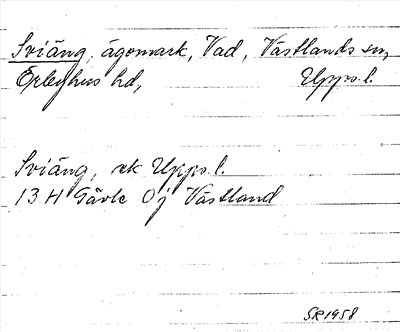 Sviäng, ägomark, Vad, Västlands sn,
Örbyhus hd, Upps. l.
Sviäng, ek Upps. l.
13 H Gävle 0j Västland
SR 1958